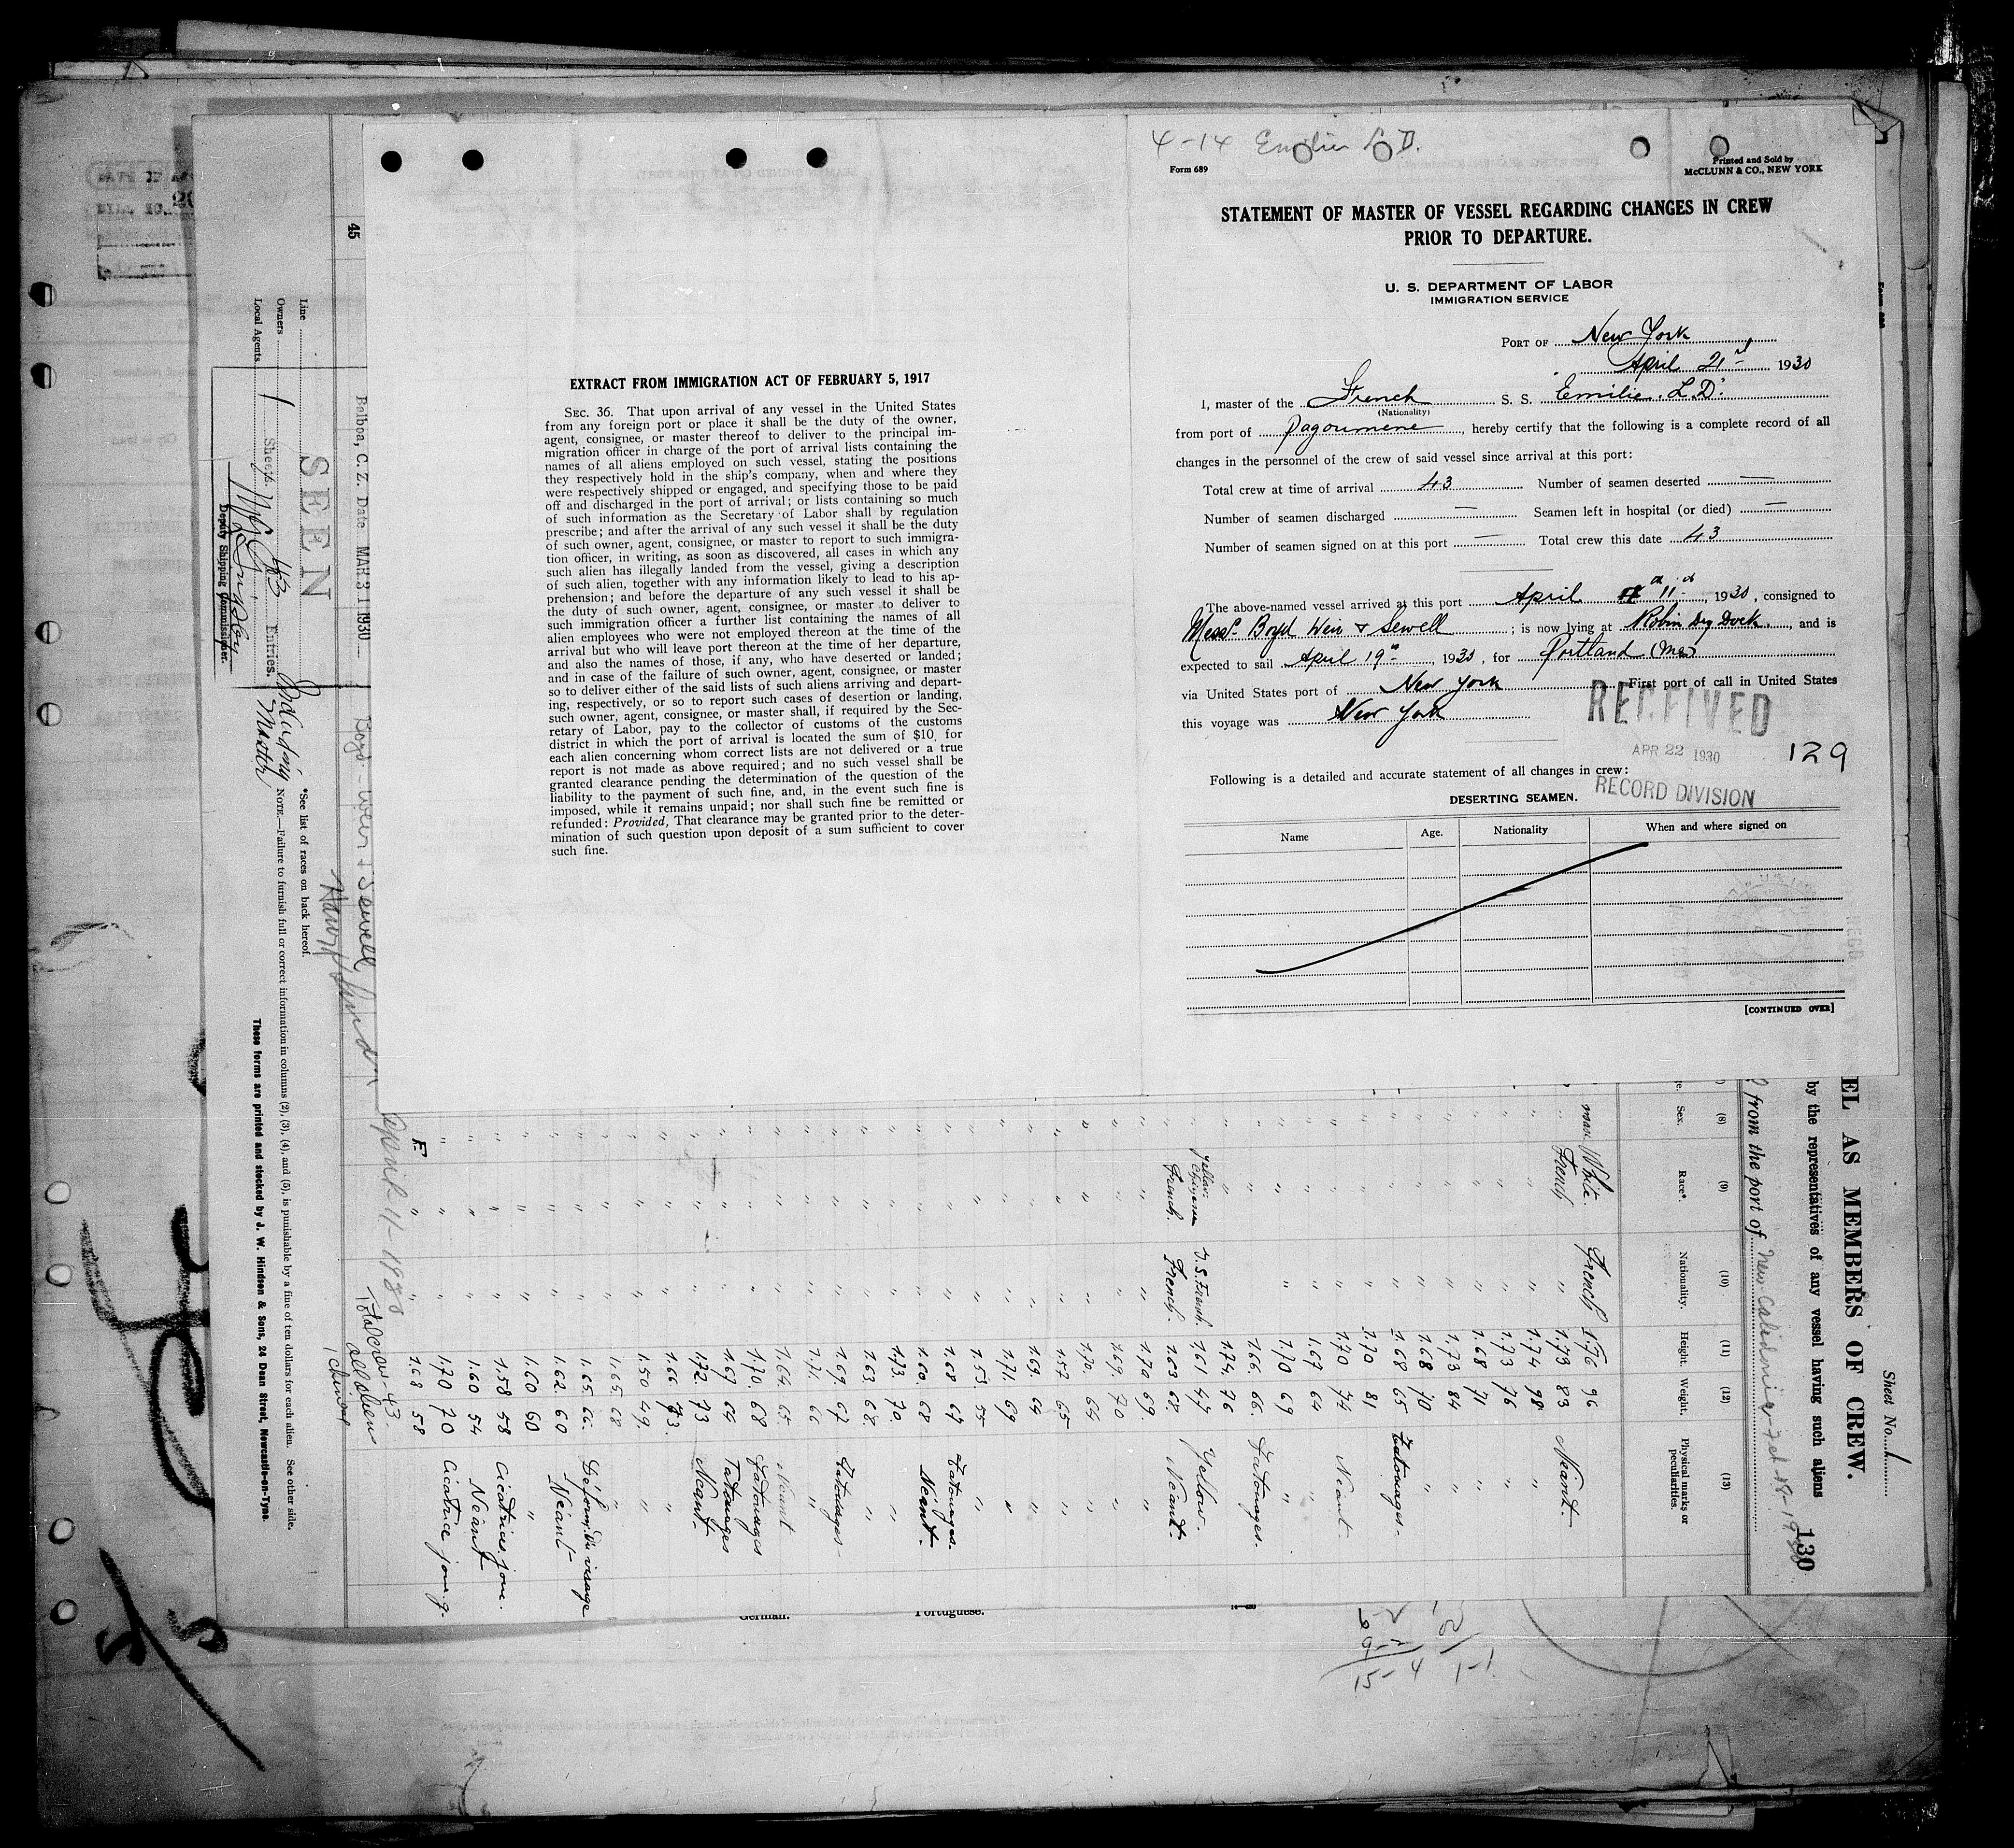 4-14 Emilie L.D.
Form 689
Printed and Sold by
McCLUNN & CO., NEW YORK
STATEMENT OF MASTER OF VESSEL REGARDING CHANGES IN CREW
PRIOR TO DEPARTURE.
U. S. DEPARTMENT OF LABOR
IMMIGRATION SERVICE
PORT OF New York
April 21st 1930
I, master of the French S. S. "Emilie. L.D."
(Nationality)
from port of Pagoumene, hereby certify that the following is a complete record of all
changes in the personnel of the crew of said vessel since arrival at this port:
Total crew at time of arrival 43 Number of seamen deserted —
Number of seamen discharged — Seamen left in hospital (or died) —
Number of seamen signed on at this port — Total crew this date 43
The above-named vessel arrived at this port April 11th, 1930, consigned to
Messrs Boyd Weir & Sewell; is now lying at Robin Dry Dock, and is
expected to sail April 19th, 1930, for Portland (Me)
via United States port of New York First port of call in United States
this voyage was New York
RECEIVED
APR 22 1930
129
Following is a detailed and accurate statement of all changes in crew:
RECORD DIVISION
DESERTING SEAMEN.
Name Age. Nationality When and where signed on
[CONTINUED OVER]
EXTRACT FROM IMMIGRATION ACT OF FEBRUARY 5, 1917
SEC. 36. That upon arrival of any vessel in the United States
from any foreign port or place it shall be the duty of the owner,
agent, consignee, or master thereof to deliver to the principal im-
migration officer in charge of the port of arrival lists containing the
names of all aliens employed on such vessel, stating the positions
they respectively hold in the ship's company, when and where they
were respectively shipped or engaged, and specifying those to be paid
off and discharged in the port of arrival; or lists containing so much
of such information as the Secretary of Labor shall by regulation
prescribe; and after the arrival of any such vessel it shall be the duty
of such owner, agent, consignee, or master to report to such immigra-
tion officer, in writing, as soon as discovered, all cases in which any
such alien has illegally landed from the vessel, giving a description
of such alien, together with any information likely to lead to his ap-
prehension; and before the departure of any such vessel it shall be
the duty of such owner, agent, consignee, or master to deliver to
such immigration officer a further list containing the names of all
alien employees who were not employed thereon at the time of the
arrival but who will leave port thereon at the time of her departure,
and also the names of those, if any, who have deserted or landed;
and in case of the failure of such owner, agent, consignee, or master
so to deliver either of the said lists of such aliens arriving and depart-
ing, respectively, or so to report such cases of desertion or landing,
such owner, agent, consignee, or master shall, if required by the Sec-
retary of Labor, pay to the collector of customs of the customs
district in which the port of arrival is located the sum of $10 for
each alien concerning whom correct lists are not delivered or a true
report is not made as above required; and no such vessel shall be
granted clearance pending the determination of the question of the
liability to the payment of such fine, and, in the event such fine is
imposed, while it remains unpaid; nor shall such fine be remitted or
refunded: Provided, That clearance may be granted prior to the deter-
mination of such question upon deposit of a sum sufficient to cover
such fine.
Sheet No. 1
EL AS MEMBERS OF CREW.
130
by the representatives of any vessel having such aliens
from the port of New Caledonia, Feb 18-1930
(8) (9) (10) (11) (12) (13)
Sex. Race*. Nationality. Height. Weight. Physical marks or
peculiarities.
White. French 1.76 96
" French " 1.73 83 Néant.
" " " 1.74 98 "
" " " 1.73 76 "
" " " 1.68 71 "
" " " 1.73 84 "
" " " 1.68 70 "
" " " 1.68 65 Tatouages.
" " " 1.70 81
" " " 1.70 74 Néant.
" " " 1.67 64 "
" " " 1.70 69 "
" " 1.66 66. Tatouages.
" " 1.74. 76
" 1.61 47 Yellow.
" French. French. 1.63 68 Néant.
" " " 1.70 69. "
" " " 1.69. 70 "
" " " 1.70. 64 "
" " " 1.57 65 "
" " " 1.69. 64 "
" " " 1.71. 69 "
" " " 1.55. 55 "
" " " 1.68 67 Tatouages.
" " " 1.60. 68 Néant.
" " " 1.73. 70. "
" " " 1.63 68. "
" " " 1.69. 67 Tatouages.
" " " 1.71. 66 "
" " " 1.64 65. Néant
" " " 1.70. 68 Tatouages
" " " 1.67 64 Tatouages
" " " 1.72. 73 Néant.
" " " 1.66 73. "
" " " 1.50 49. "
" " " 1.65. 68 "
" " " 1.65 66. Déform. du visage
" " " 1.62. 60 Néant
" " " 1.60 60 "
" " " 1.58 58 Cicatrices joue.
" " " 1.60 54 Néant
" " " 1.70 70 Cicatrice joue g.
E. " " 1.68 58
April 11-1930
Total crew 43.
all aliens
1 chinese
45
Balboa, C. Z. Date MAR 31 1930
Boyd-Weir & Sewell
SEEN
1 Sheets 43 Entries.
Deputy Shipping Commissioner.
Line
Owners
Local Agents
Master
*See list of races on back hereof.
NOTE.—Failure to furnish full or correct information in columns (2), (3), (4), and (5), is punishable by a fine of ten dollars for each alien. See other side.
These forms are printed and stocked by J. W. Hindson & Sons, 24 Dean Street, Newcastle-on-Tyne.
German. Portuguese.
9-2
15-4 1-1